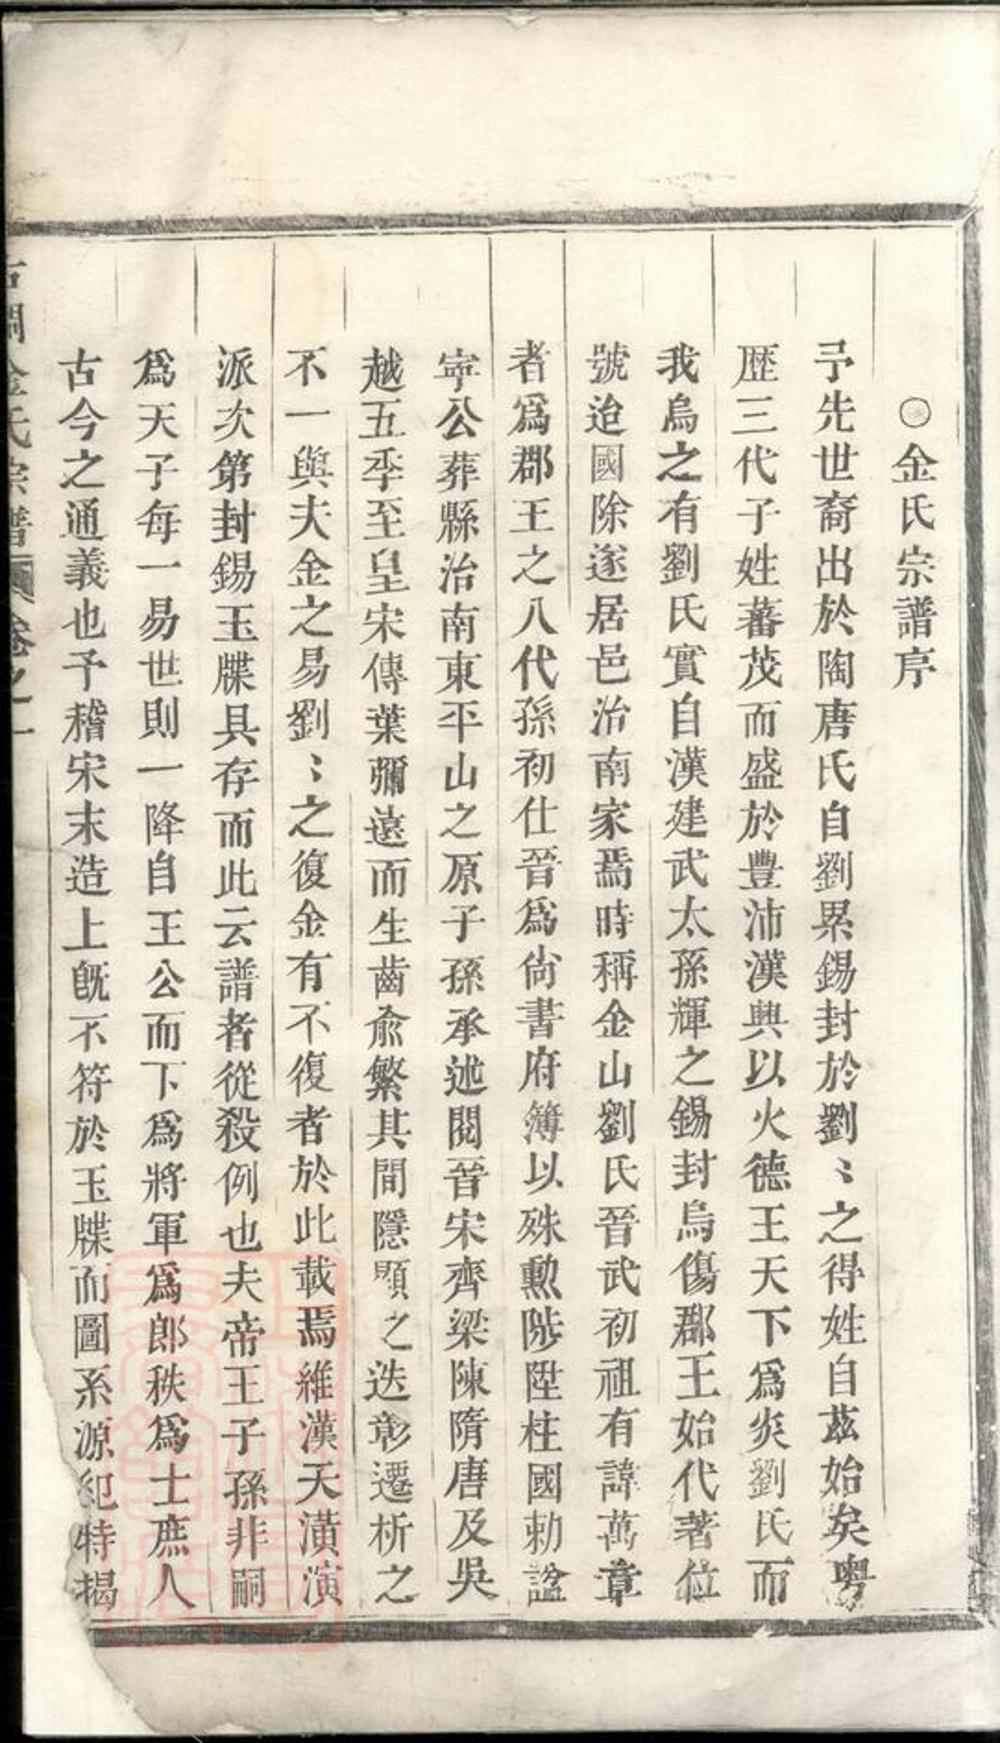 ○金氏宗譜序
予先世裔出於陶唐氏自劉累錫封於劉〻之得姓自茲始矣粵
歷三代子姓蕃茂而盛於豐沛漢興以火德王天下爲炎劉氏而
我烏之有劉氏實自漢建武太孫輝之錫封烏傷郡王始代著位
號迨國除遂居邑治南家焉時稱金山劉氏晉武初祖有諱萬章
者爲郡王之八代孫初仕晉爲尙書府簿以殊勳陟陞柱國勅諡
寧公葬縣治南東平山之原子孫承述閱晉宋齊梁陳隋唐及吳
越五季至皇宋傳葉彌遠而生齒兪繁其間隱顯之迭彰遷析之
不一與夫金之易劉〻之復金有不復者於此載焉維漢天潢演
派次第封錫玉牒具存而此云譜者從殺例也夫帝王子孫非嗣
爲天子每一易世則一降自王公而下爲將軍爲郎秩爲士庶人
古今之通義也予稽宋末造上旣不符於玉牒而圖系源紀特揭
金氏宗譜 卷之一